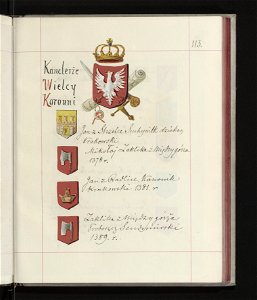 113.
Kanclerze
Wielcy
Koronni
Jan z
Krakowski
Mikołaj Zaklika z Międzygórza
1378. r.
Jan z Radlice Kanonik
Krakowski 1381. r.
Zaklika z Międzygórza
Proboszcz Sandomirski
1389. r.